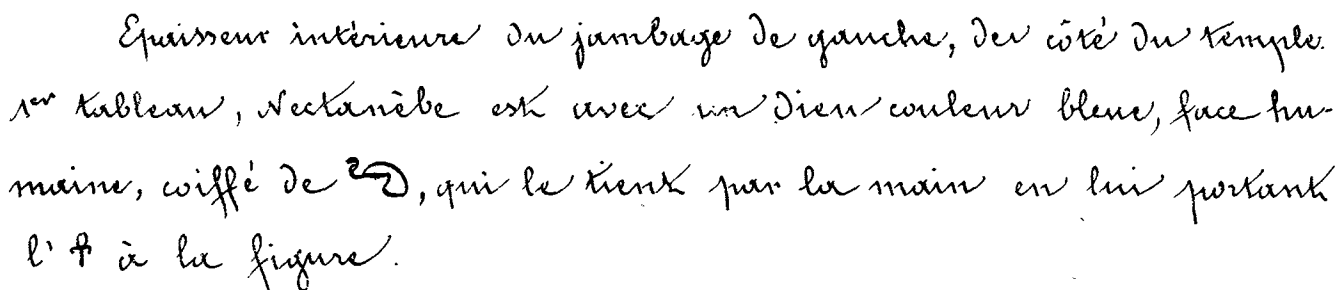 Epaisseur intérieure du jambage de gauche, du côté du temple.
1er tableau, Nectanèbe est avec un Dieu couleur bleue, face hu-
maine, coiffé de , qui le tient par la main en lui portant
l' 𓋹 à la figure.